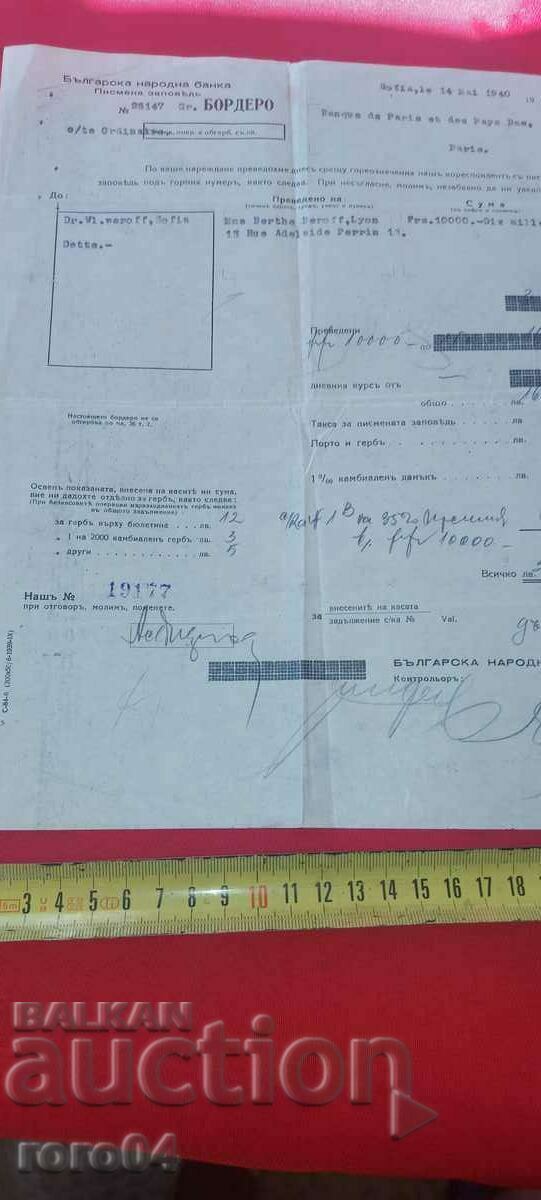 Българска народна банка
Писмена заповѣдь
№ 26147 Gr. БОРДЕРО
Sofia, le 14 Mai 1940 19
c/te Ordinaire
Banque de Paris et des Pays Bas,
Paris.
По ваше нареждане преведохме днесъ срещу гореозначения нашъ кореспондентъ съ пис
заповѣдь подъ горния нумеръ, както следва. При несъгласие, молимъ, незабавно да ни увед
До:
Преведено на:
Сума
Dr. Wl. Neroff, Sofia
Mme Bertha Neroff, Lyon
Frs. 10000.- Dix mill
13 Rue Adelaide Perrin 13.
Dette.-
Преведени
frfr 10000 - по
дневния курсъ отъ
общо лв. 16
Настоящето бордеро не се
обгербва по чл. 36 т. 2.
Такса за писмената заповѣдь лв
Порто и гербъ
1 ‰ камбиаленъ данъкъ
Освенъ показаната, внесена на каситѣ ни сума,
вие ни дадохте отдѣлно за гербъ, както следва:
за гербъ върху бюлетина лв. 12
" 1 на 2000 камбиаленъ гербъ " 3
" други " 5
на 35% премия
frfr 10000 -
Всичко лв.
Нашъ № 19177
при отговоръ, молимъ, поменете.
за внесенитѣ на касата
задължение с/ка № Val.
БЪЛГАРСКА НАРОДН
Контрольоръ:
3 4 5 6 7 8 9 10 11 12 13 14 15 16 17 18
5m
BALKAN
auction
roro04